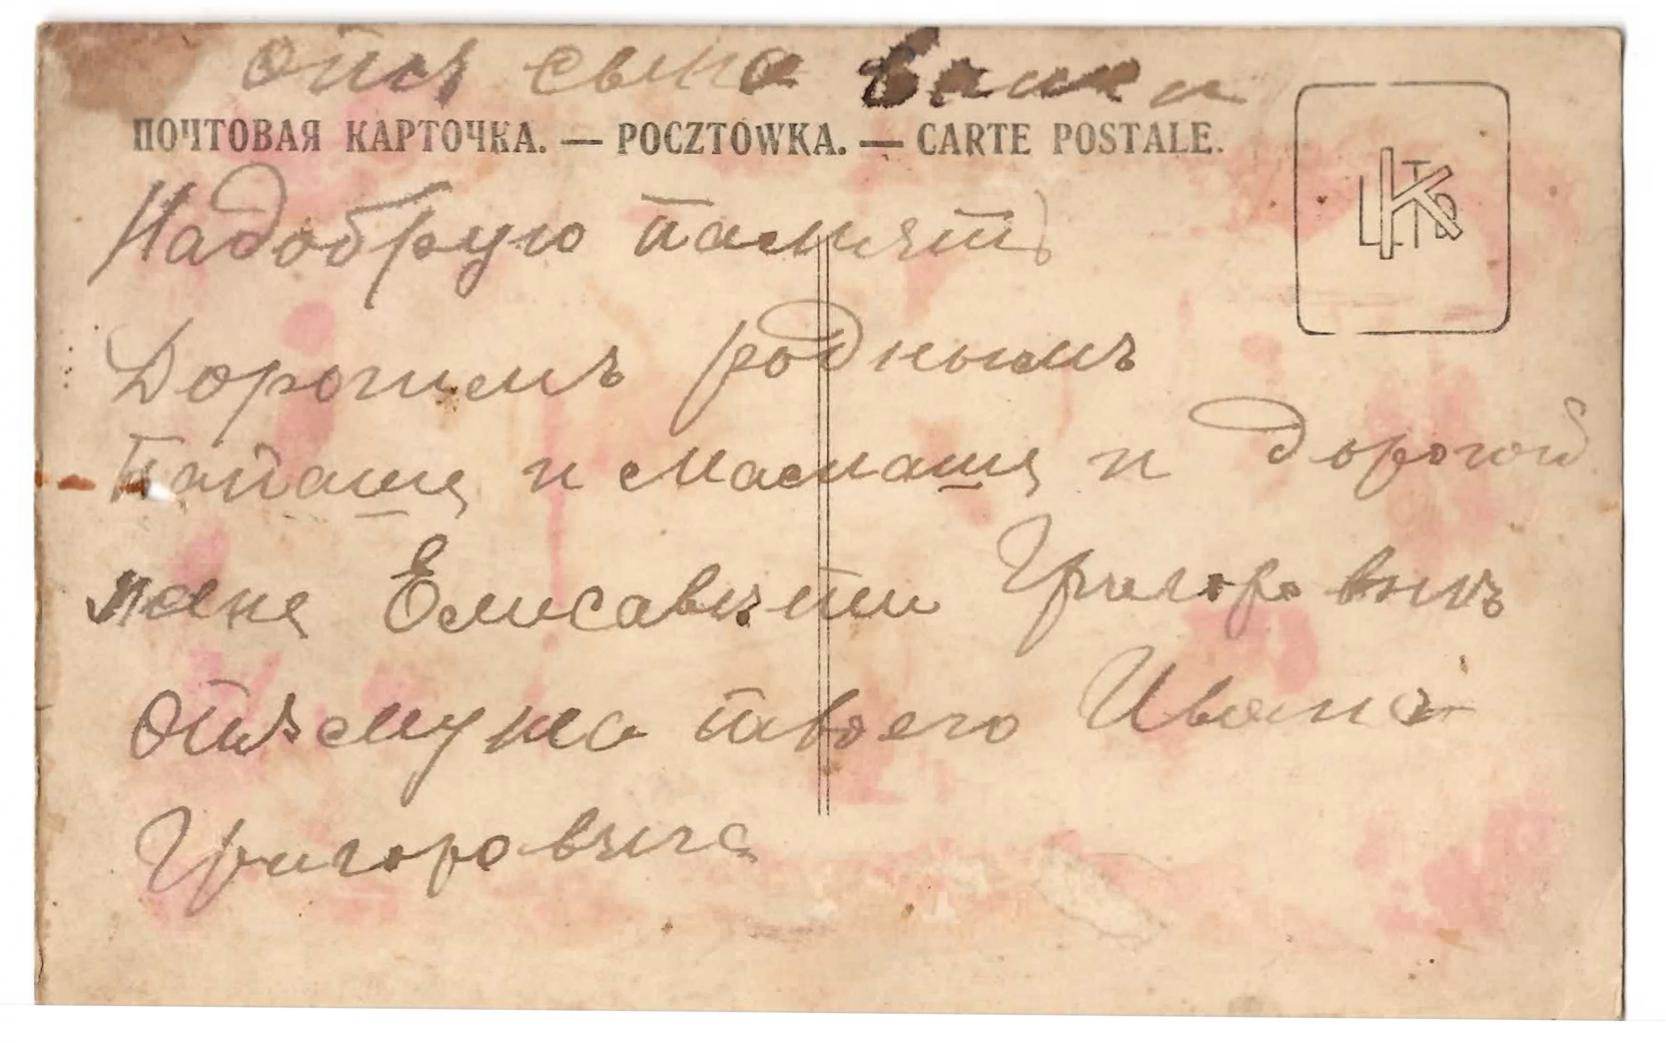 отъ сына вашего
ПОЧТОВАЯ КАРТОЧКА. — POCZTÓWKA. — CARTE POSTALE.
На добрую память
Дорогимъ роднымъ
Папаше и Мамаше и дорогой
жене Елисавети Григоровнъ
отъ мужа твоего Ивана
Григоровича